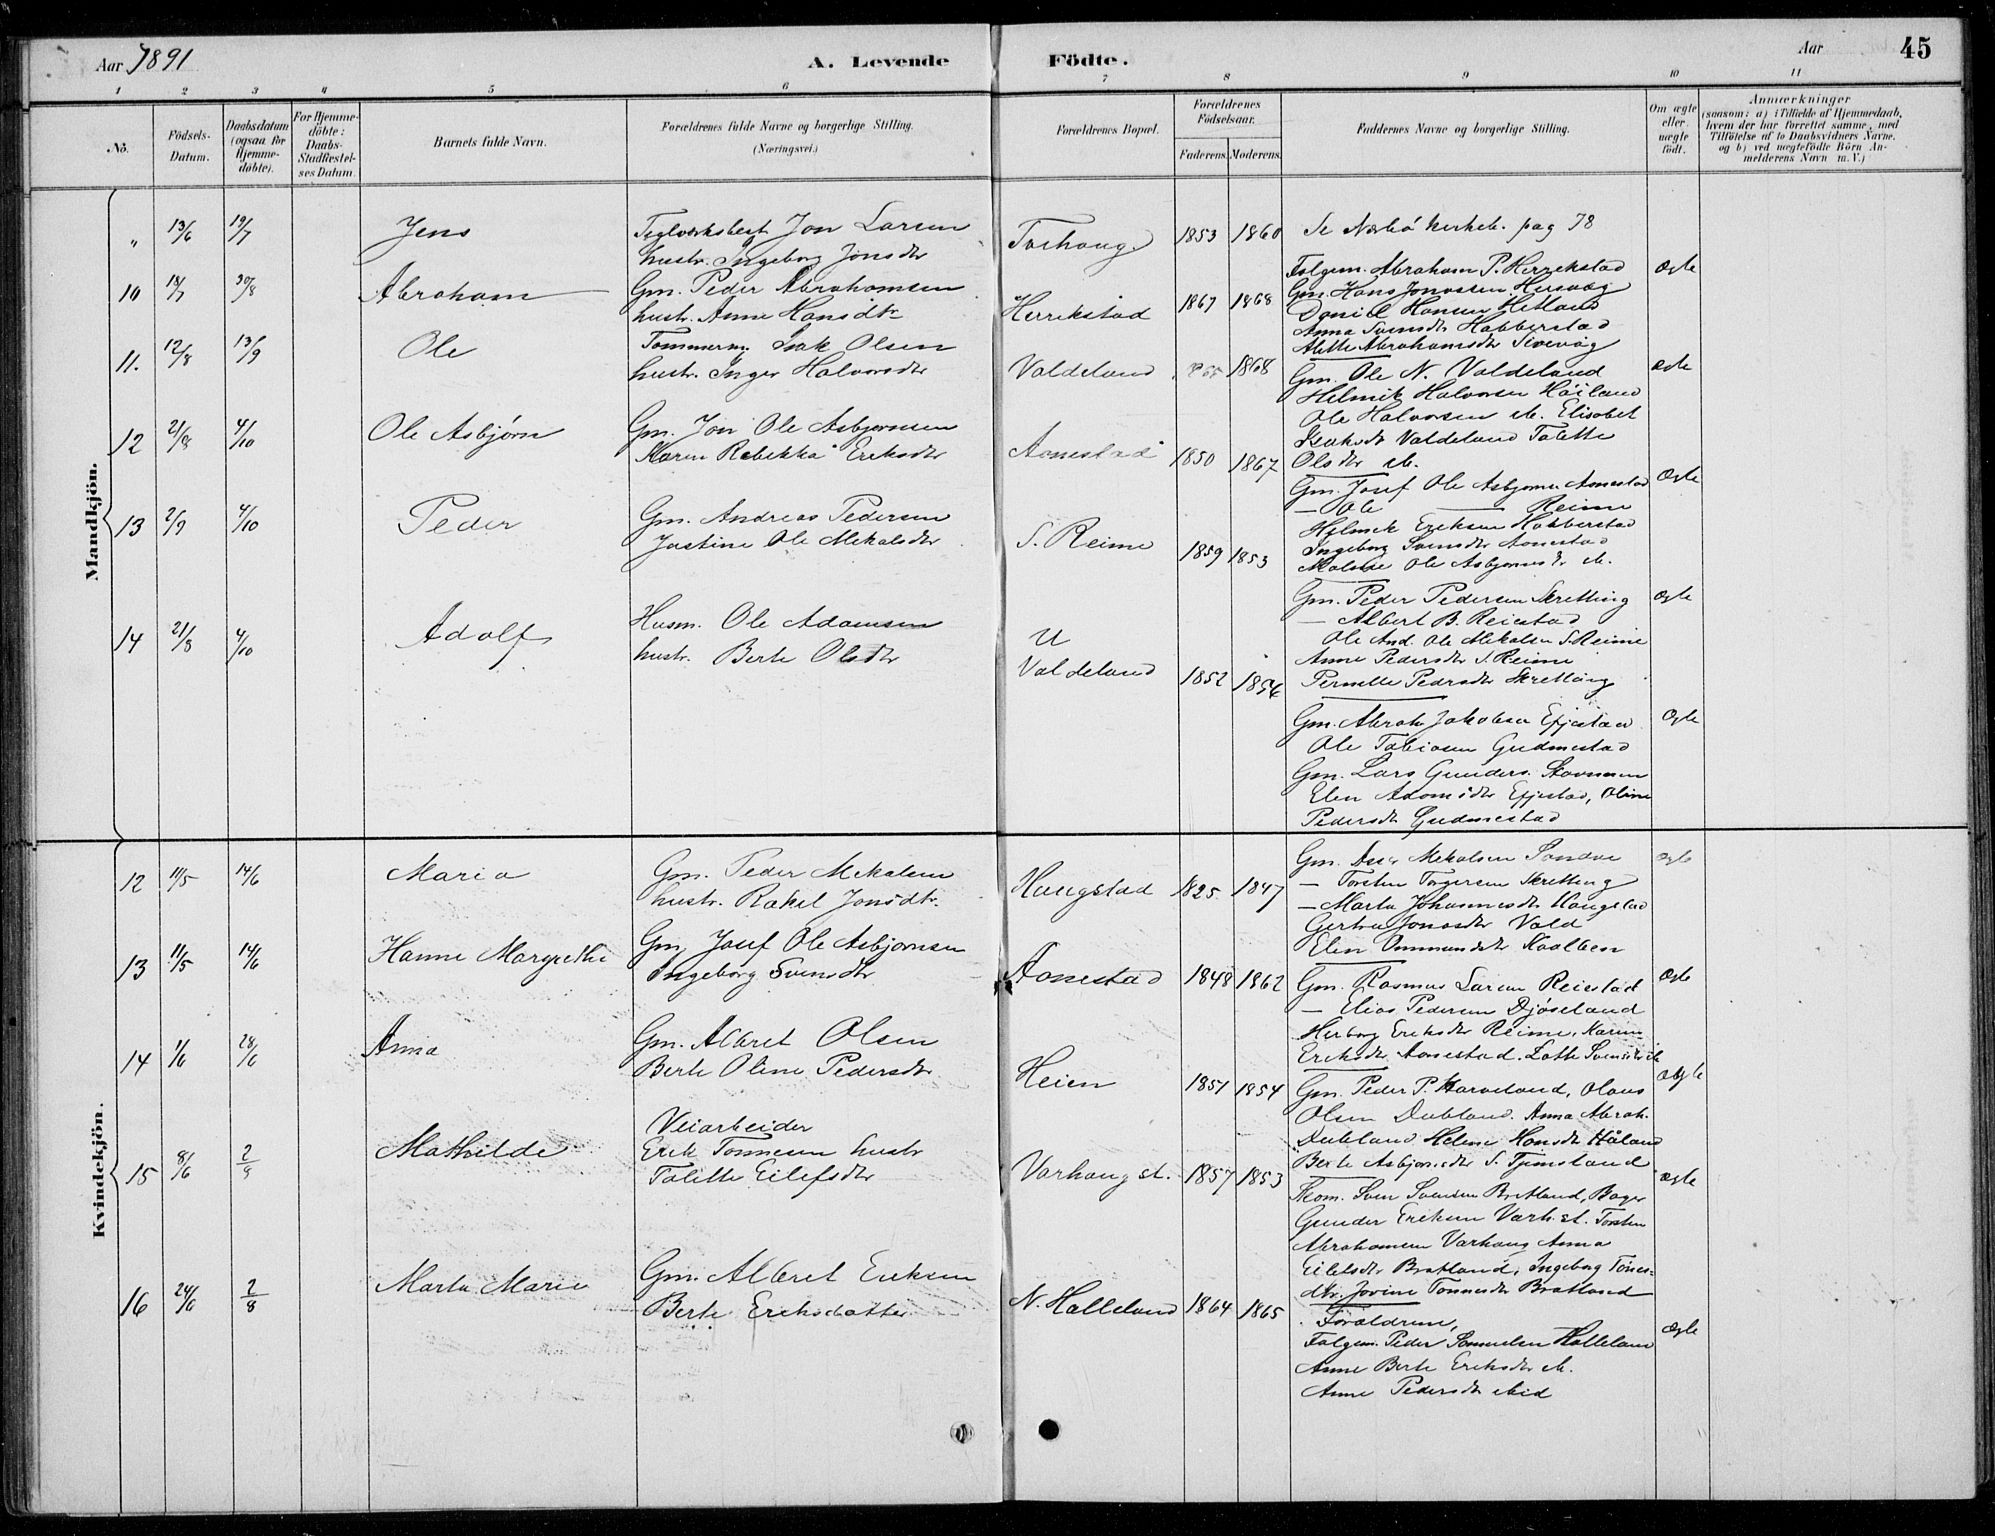 Aar 1891
A. Levende Födte.
Aar
45
1 2 3 4 5 6 7 8 9 10 11
No.
Födsels-
Datum.
Daabsdatum
(ogsaa for
Hjemme-
döbte).
For Hjemme-
döbte:
Daabs-
Stadfæstel-
ses Datum.
Barnets fulde Navn.
Forældrenes fulde Navne og borgerlige Stilling.
(Næringsvei.)
Forældrenes Bopæl.
Forældrenes
Födselsaar.
Faderens. Moderens.
Faddernes Navne og borgerlige Stilling.
Om ægte
eller
uægte
födt.
Anmærkninger
(saasom: a) i Tilfælde af Hjemmedaab,
hvem der har forrettet samme, med
Tilföielse af to Daabsvidners Navne.
og b) ved uægtefödte Börn An-
melderens Navn m. V.)
Mandkjön.
" 13/6 19/7 Jens
Teglværksbest Jon Larsen
hustr. Ingeborg Jonsdtr
1853 1860
Se Nærbö kirkeb. pag 78
10 18/7 30/8 Abraham
Gm. Peder Abrahamsen
hustr. Anne Hansdtr
Herrekstad 1867 1868
Folgem. Abraham P. Herrekstad
Gm. Hans Jonassen
Daniel Hansen Hetland
Anna Svensdtr Habberstad
Alette Abrahamsdtr
Ægte
11. 12/8 13/9 Ole
Tommerm. Isak Olsen
hustr. Inger Halvorsdtr
Valdeland 1868
Gm. Ole N. Valdeland
Helmik Halvorsen Höiland
Ole Halvorsen ib. Elisabet
Isaksdtr Valdeland Talette
Olsdtr ib.
Ægte
12 21/8 4/10 Ole Asbjörn
Gm. Jon Ole Asbjornsen
Karen Rebekka Eriksdtr
Aanestad 1850 1867
Gm. Josef Ole Asbjornsen Aanestad
— Ole — Reime
Helmik Eriksen Habberstad
Ingeborg Svensdtr Aanestad
Malene Ole Asbjornsdtr ib.
Ægte
13 2/9 4/10 Peder
Gm. Andreas Pedersen
Justine Ole Mikalsdtr
S. Reime 1859 1853
Gm. Peder Pedersen Skretting
— Albert B. Reiestad
Ole And. Ole Mikalsen S. Reime
Anne Pedersdtr S. Reime
Pernille Pedrsdtr Skretting
Ægte
14 21/8 4/10 Adolf
Husm. Ole Adamsen
hustr. Berte Olsdtr
U
Valdeland 1852 1854
Gm. Abrah. Jakobsen
Ole Tobiasen Gudmestad
Gm. Lars Gunders.
Elen Adamsdtr Oline
Pedersdtr Gudmestad
Ægte
Kvindekjön.
12 11/5 14/6 Maria
Gm. Peder Mikalsen
hustr. Rakel Jonsdtr.
Haugstad 1825 1847
Gm. Mikalsen
— Torsten Torgersen Skretting
— Marta Johannesdtr Haugstad
Gertru Jonasdtr Vold
Elen Ommundsdtr
Ægte
13 11/5 14/6 Hanne Margrethe
Gm. Josef Ole Asbjornsen
Ingeborg Svensdtr
Aanestad 1848 1862
Gm. Rasmus Larsen Reiestad
— Elias Pedersen Djöseland
Herborg Eriksdtr Reime, Karen
Eriksdtr Aanestad. Lotte Svensdtr ib
Ægte
14 1/6 28/6 Anna
Gm. Albret Olsen
Berte Oline Pedersdtr
Heien 1851 1854
Gm. Peder P. Harveland, Olaus
Olsen Dubland. Anna Abrah.
Dubland Helene Hansdtr Håland
Berte Asbjorsdtr S. Tjemsland
Ægte
15 8/6 2/8 Mathilde
Veiarbeider
Erik Tonnesen hustr
Talette Eilefsdtr
Varhaug st. 1857 1853
Skom. Sven Svendsen Bratland, Bager
Gunder Eriksen Varh. st. Torsten
Abrahamsen Varhaug Anna
Eilefsdtr Bratland, Ingeborg Tönnes-
dtr. Jovine Tonnesdtr Bratland
Ægte
16 24/6 2/8 Marta Marie
Gm. Albret Eriksen
Berte Eriksdatter
N. Halleland 1864 1865
Foraldrene,
Folgem. Peder Samuelsen Halleland
Anne Berte Eriksdtr ib.
Anne Pedersdtr ibid
Ægte